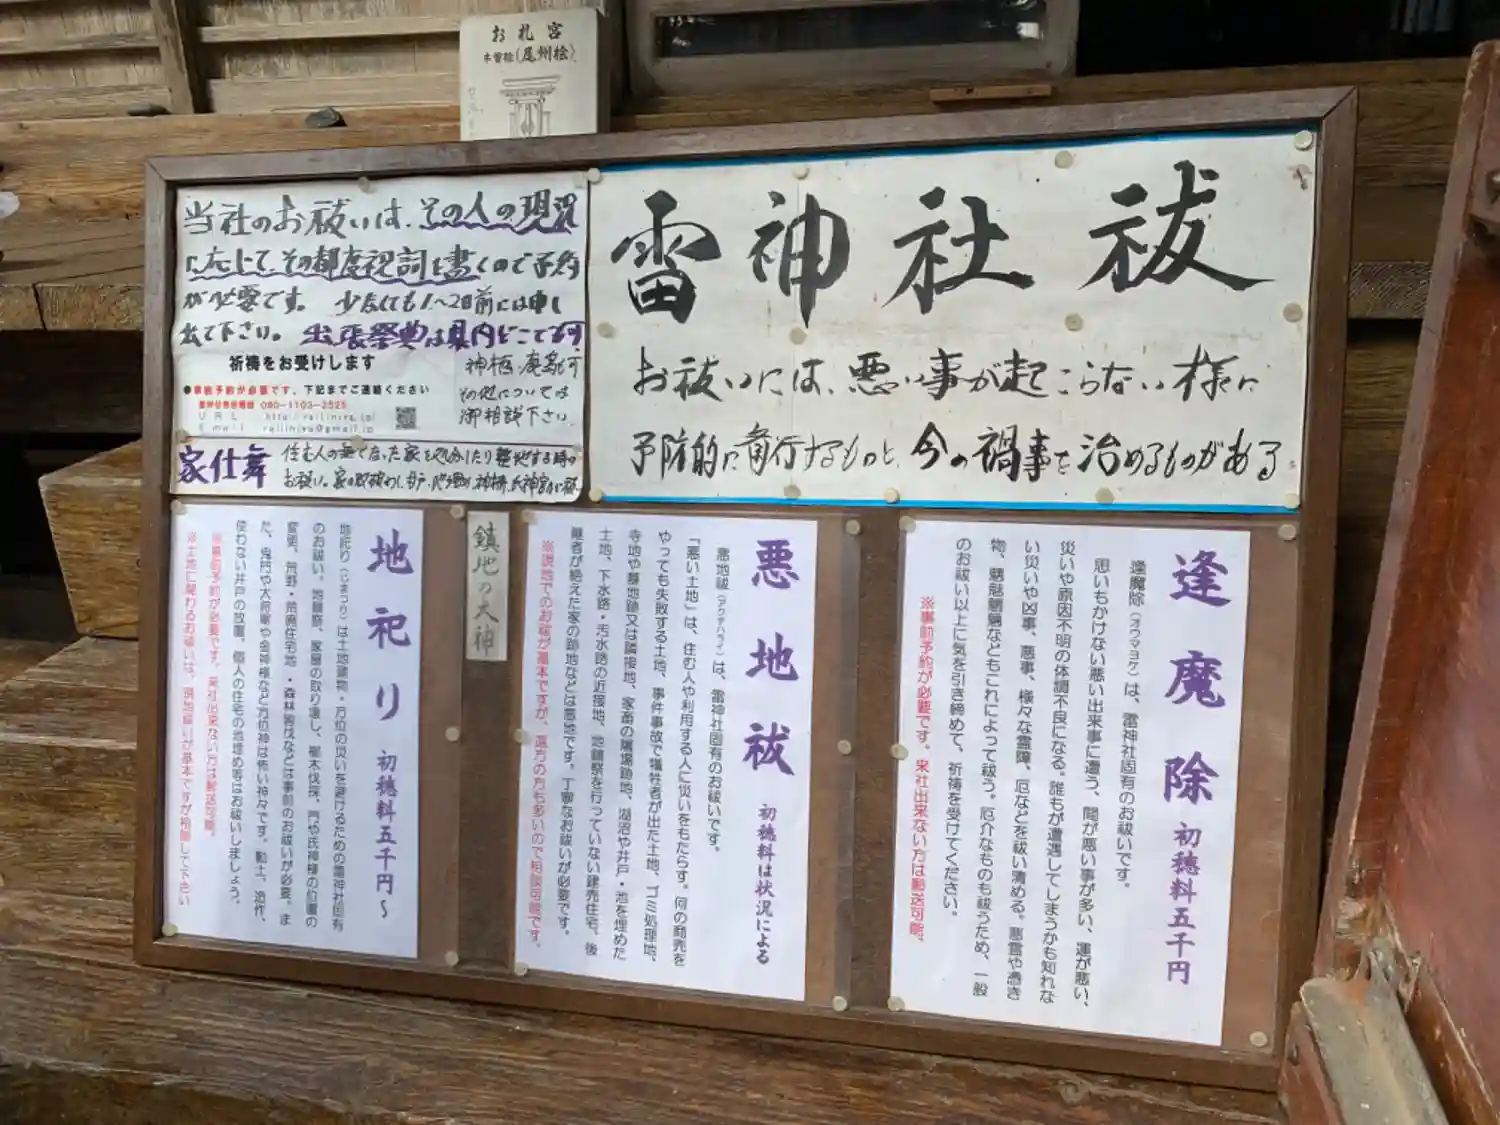 お札宮
木曽桧（尾州桧）
雷神社祓
お祓いには、悪い事が起こらない様に
予防的に斎行するものと、今の禍事を治めるものがある
当社のお祓いは、その人の現況
に応じて、その都度祝詞を書くので予約
が必要です。少なくても1〜2日前には申し
出て下さい。出張祭典は県内どこでも可
祈祷をお受けします
●事前予約が必要です、下記までご連絡ください
090-1103-2525
URL
Email raijinjya@gmail.jp
その他については
御相談下さい
家仕舞
住む人の無くなった家を処分したり整地する時の
お祓い。
逢魔除 初穂料五千円
逢魔除（オウマヨケ）は、雷神社固有のお祓いです。
思いもかけない悪い出来事に遭う、間が悪い事が多い、運が悪い、
災いや原因不明の体調不良になる。誰もが遭遇してしまうかも知れな
い災いや凶事、悪事、様々な霊障、厄などを祓い清める。悪霊や憑き
物、魑魅魍魎などもこれによって祓う。厄介なものも祓うため、一般
のお祓い以上に気を引き締めて、祈祷を受けてください。
※事前予約が必要です。来社出来ない方は郵送可能。
悪地祓 初穂料は状況による
悪地祓（アクチハライ）は、雷神社固有のお祓いです。
「悪い土地」は、住む人や利用する人に災いをもたらす。何の商売を
やっても失敗する土地、事件事故で犠牲者が出た土地、ゴミ処理地、
寺地や墓地跡又は隣接地、家畜の屠場跡地、湖沼や井戸・池を埋めた
土地、下水路・汚水路の近接地、地鎮祭を行っていない建売住宅、後
継者が絶えた家の跡地などは悪地です。丁寧なお祓いが必要です。
※現地でのお祓が基本ですが、遠方の方も多いので相談可能です。
鎮地の大神
地祀り 初穂料五千円〜
地祀り（じまつり）は土地建物・方位の災いを避けるための雷神社固有
のお祓い。地鎮祭、家屋の取り壊し、樹木伐採、門や氏神様の位置の
変更、荒野・荒廃住宅地・森林皆伐などは事前のお祓いが必要。ま
た、鬼門や大将軍や金神様など方位神は怖い神々です。動土、造作、
使わない井戸の放置、個人の住宅の池埋め等はお祓いしましょう。
※事前予約が必要です。来社出来ない方は郵送可能。
※土地に関わるお祓いは、現地祓いが基本ですが相談して下さい